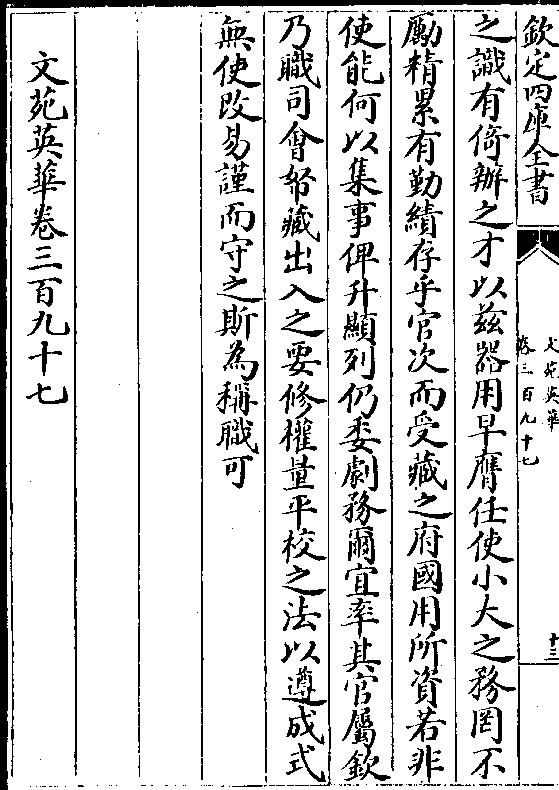 欽定四庫全書
文苑英華
卷三百九十七
十三
之識有倚辦之才以兹器用早膺任使小大之務罔不
勵精累有勤績存乎官次而受藏之府國用所資若非
使能何以集事俾升顯列仍委劇務爾宜率其官屬欽
乃職司會帑藏出入之要修權量平校之法以遵成式
無使改易謹而守之斯為稱職可
文苑英華卷三百九十七